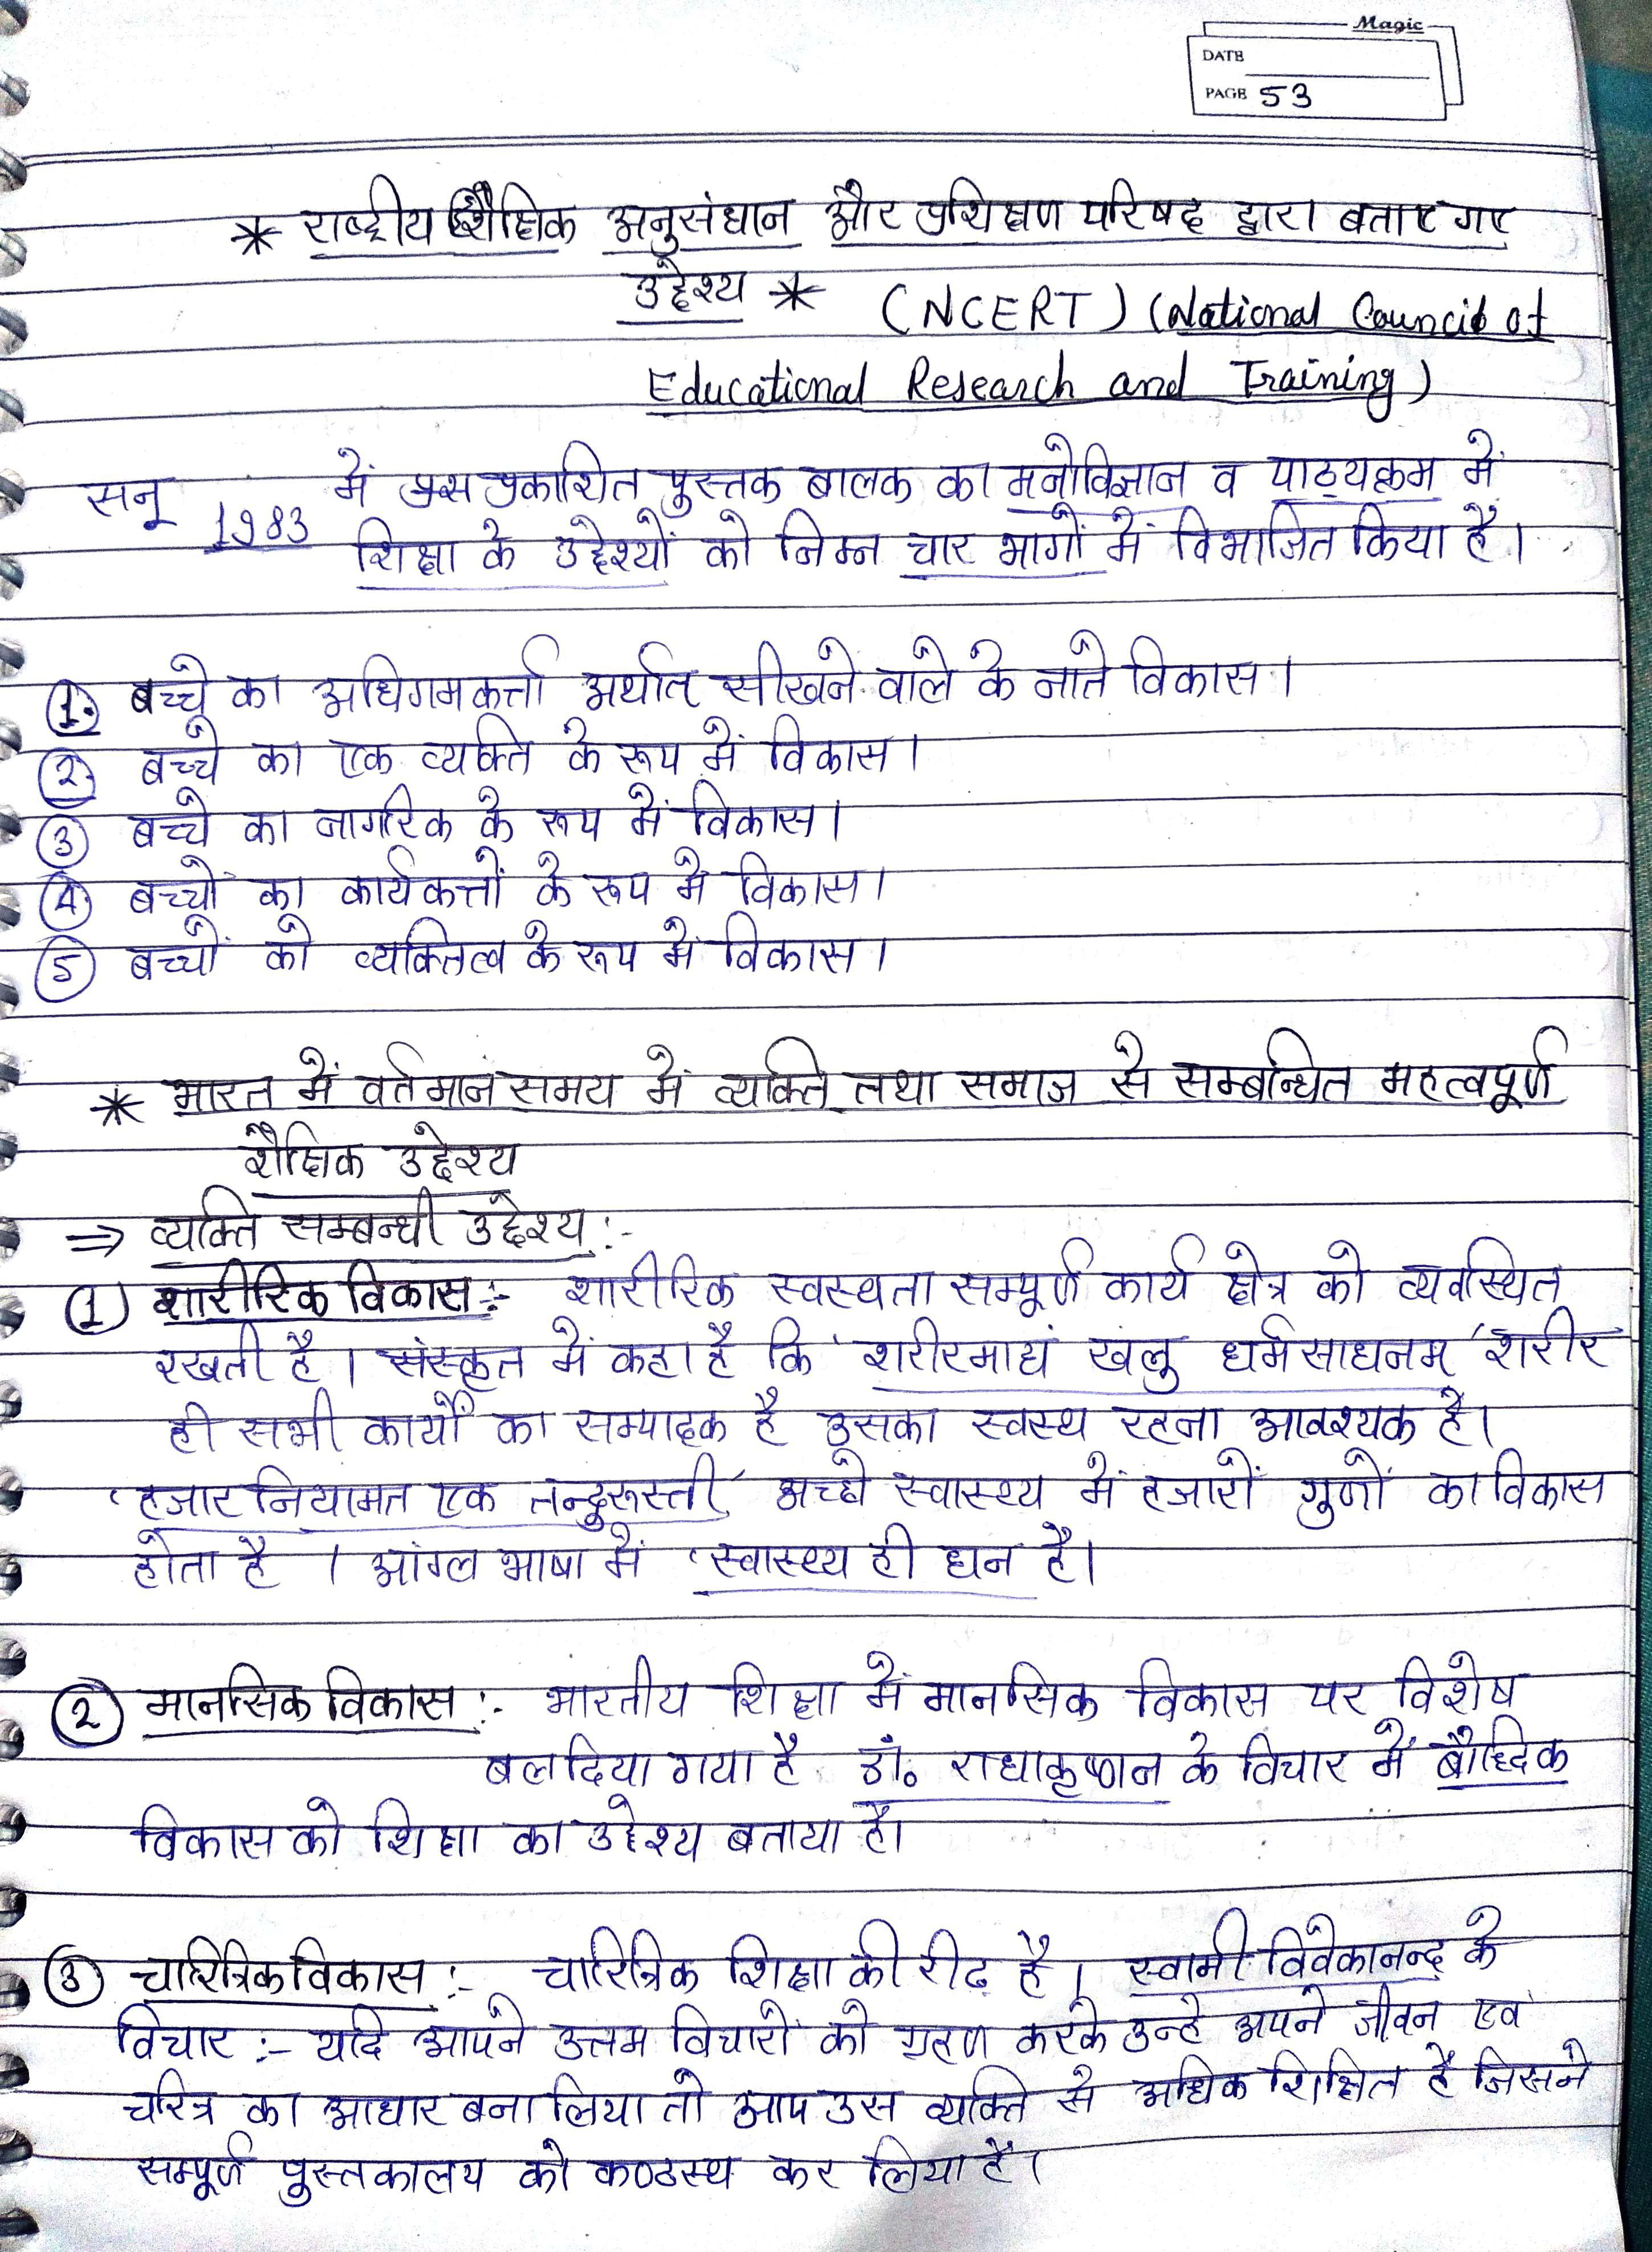 Magic
DATE
PAGE 53
* राष्ट्रीय शैक्षिक अनुसंधान और प्रशिक्षण परिषद द्वारा बताए गए
उद्देश्य * (NCERT) (National Council of
Educational Research and Training)
सन् 1983 में प्रकाशित पुस्तक बालक का मनोविज्ञान व पाठ्यक्रम में
शिक्षा के उद्देश्यों को निम्न चार भागों में विभाजित किया है।
1. बच्चे का अधिगमकर्त्ता अर्थात सीखने वाले के नाते विकास।
2. बच्चे का एक व्यक्ति के रूप में विकास।
3 बच्चे का नागरिक के रूप में विकास।
4. बच्चों का कार्यकर्त्ता के रूप में विकास।
5 बच्चों को व्यक्तित्व के रूप में विकास।
* भारत में वर्तमान समय में व्यक्ति तथा समाज से सम्बन्धित महत्वपूर्ण
शैक्षिक उद्देश्य
⇒ व्यक्ति सम्बन्धी उद्देश्य :-
1) शारीरिक विकास :- शारीरिक स्वस्थता सम्पूर्ण कार्य क्षेत्र को व्यवस्थित
रखती है। संस्कृत में कहा है कि 'शरीरमाद्यं खलु धर्मसाधनम्' शरीर
ही सभी कार्यों का सम्पादक है उसका स्वस्थ रहना आवश्यक है।
'हजार नियामत एक तन्दुरूस्ती' अच्छे स्वास्थ्य में हजारों गुणों का विकास
होता है । आंग्ल भाषा में 'स्वास्थ्य ही धन है।
2 मानसिक विकास :- भारतीय शिक्षा में मानसिक विकास पर विशेष
बल दिया गया है डॉ. राधाकृष्णन के विचार में बौद्धिक
विकास को शिक्षा का उद्देश्य बताया है।
3 चारित्रिक विकास :- चारित्रिक शिक्षा की रीढ़ है। स्वामी विवेकानन्द के
विचार :- यदि आपने उत्तम विचारों को ग्रहण करके उन्हे अपने जीवन एवं
चरित्र का आधार बना लिया तो आप उस व्यक्ति से अधिक शिक्षित है जिसने
सम्पूर्ण पुस्तकालय को कण्ठस्थ कर लिया है।